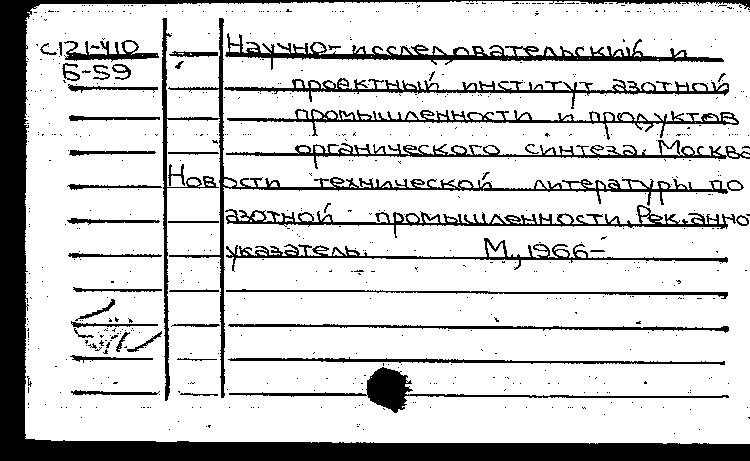 С121-410
Б-59
Научно-исследовательский и
проектный институт азотной
промышленности и продуктов
органического синтеза. Москва
Новости технической литературы по
азотной промышленности. Рек. анно
указатель. М., 1966-